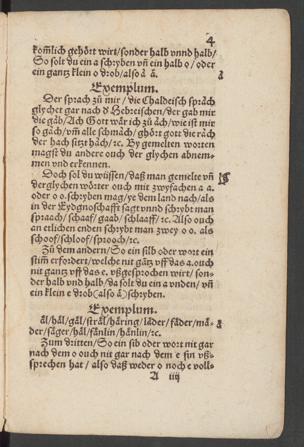 4
komlich gehört wirt/sonder halb vnnd halb/
So solt du ein a schryben vñ ein halb o/oder
ein gantz klein o drob/also å å.
Exemplum.
Der sprach zů mir/die Chaldeisch språch
glychet gar nach d Hebreischen/der gab mir
die gåb/Ach Gott wår ich zů åch/wie ist mir
so gåch/vm̃ alle schmåch/ghört gott die råch
der hach sitzt håch/ꝛc. By gemelten worten
magst du andere ouch der glychen abnem-
men vnd erkennen.
Doch sol du wüssen/daß man gemelte vñ
derglychen wörter ouch mit zwyfachen a a.
oder o o. schryben mag/ye dem land nach/als
in der Eydgnoschafft sagt vnnd schrybt man
spraach/schaaf/gaab/schlaaff/ꝛc. Also ouch
an etlichen enden schrybt man zwey o o. als
schoof/schloof/sprooch/ꝛc.
Zů dem andern/So ein silb oder wort ein
stim̃ erfordert/welche nit gātz vff das a. ouch
nit gantz vff das e. vßgesprochen wirt/son-
der halb vnd halb/da solt du ein a vnden/vñ
ein klein e drob(also aͤ)schryben.
Exemplum.
aͤl/haͤl/gaͤl/straͤl/haͤring/laͤder/faͤder/maͤ-
der/saͤger/haͤl/faͤnlin/haͤnlin/ꝛc.
Zum dritten/So ein silb oder wort nit gar
nach dem o ouch nit gar nach dem e sin vß-
sprechen hat/also daß weder o noch e voll-
A iiij